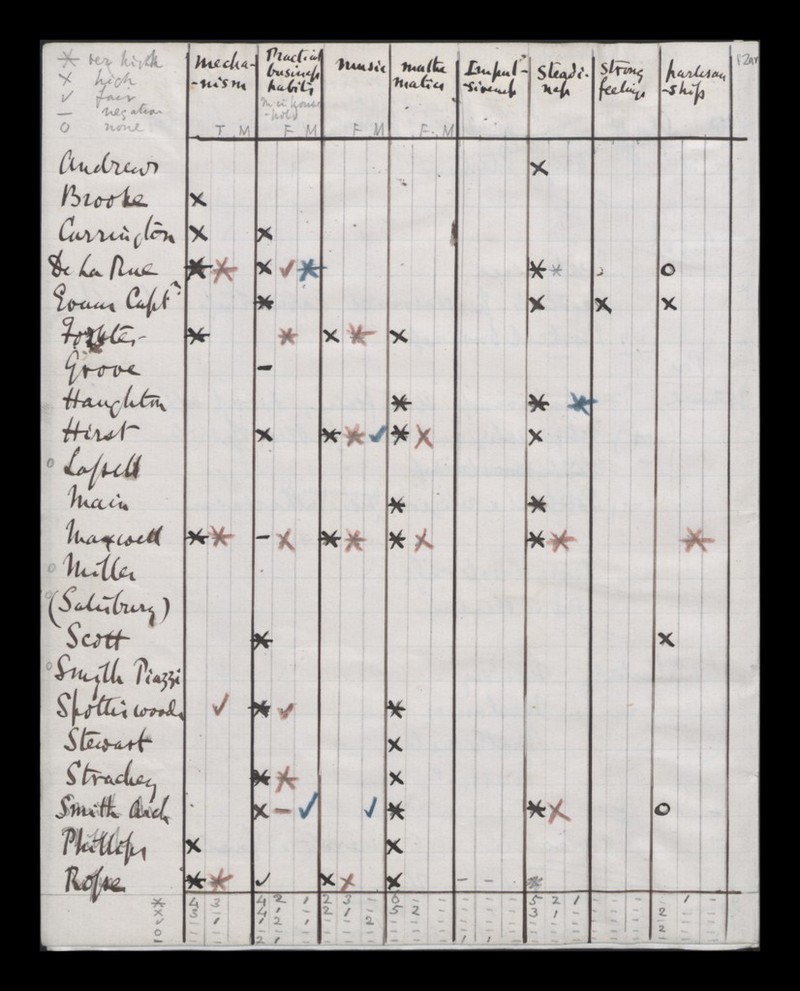 ✳ very high
× high
✓ fair
– negative
o none
mecha-
-nism
Practical
business
habits
-hold
music
mathe
matics
Impul-
-siveness
Steadi-
ness
Strong
feelings
partisan
-ship
F M F M F M F. M
Andrews ×
Brooke ×
Carrington × ×
De La Rue ✳ ✳ × ✓ ✳ ✳ ✳ o
Evans Captn ✳ × × ×
Forster ✳ ✳ × ✳ ×
Grove –
Haughton ✳ ✳ ✳
Hirst × ✳ ✳ ✓ ✳ × ×
o Lassell
Main ✳ ✳
Maxwell ✳ ✳ – × ✳ ✳ ✳ × ✳ ✳ ✳
o Miller
(Salisbury)
Scott ✳ ×
o Smyth Piazzi
Spottiswoode ✓ ✳ ✓ ✳
Stewart ×
Strachey ✳ ✳ ×
Smith Arch × – ✓ ✓ ✳ ✳ × o
Phillips × ×
Ropse ✳ ✳ ✓ × × × – – ✳
✳ 4 3 4 2 1 2 3 – 6 – – – – – 5 2 1 – – – – 1 –
× 3 – 4 1 – 2 1 – 5 2 – – – – 3 1 – – – – 2 – –
✓ – 1 1 2 1 – – 2 – – –
o – – – – – 2 – –
– – – 2 1 – – – – 1 1 – – –